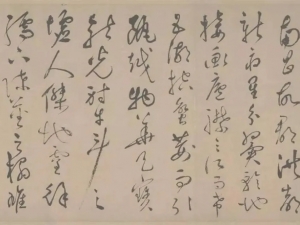 南昌故郡洪都
新府星分翼軫地
接衡廬襟三江而帶
五湖控蠻荊而引
甌越物華天寶
龍光射牛斗之
墟人傑地靈徐
孺下陳蕃之榻雄